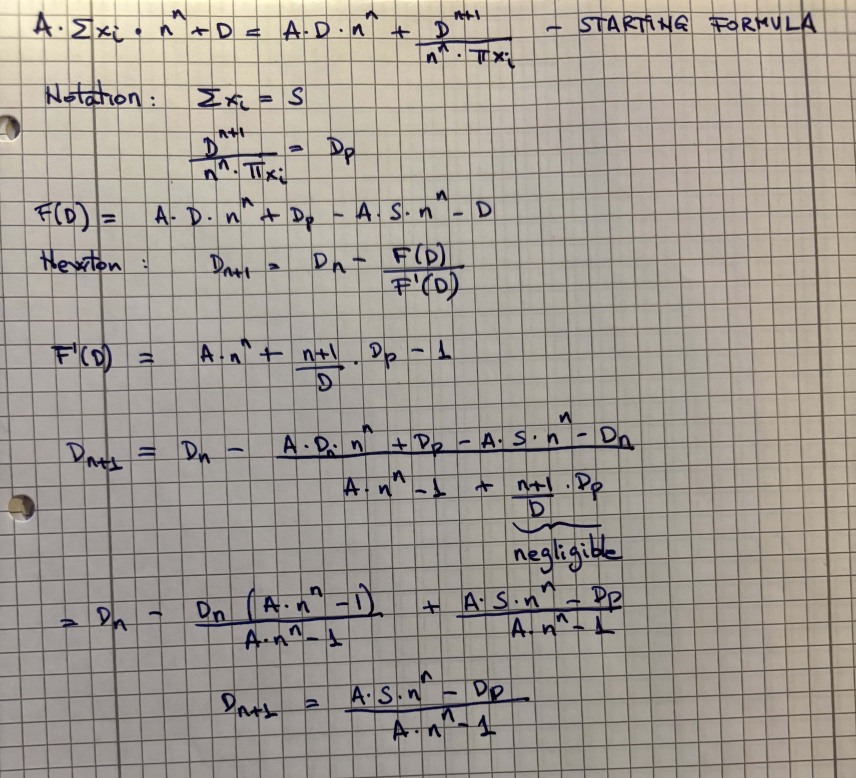 A·Σxᵢ·nⁿ+D = A·D·nⁿ + Dⁿ⁺¹/(nⁿ·Πxᵢ) - STARTING FORMULA
Notation: Σxᵢ = S
Dⁿ⁺¹/(nⁿ·Πxᵢ) = Dₚ
F(D) = A·D·nⁿ + Dₚ - A·S·nⁿ - D
Newton: Dₙ₊₁ = Dₙ - F(D)/F'(D)
F'(D) = A·nⁿ + (n+1)/D · Dₚ - 1
Dₙ₊₁ = Dₙ - (A·Dₙ·nⁿ + Dₚ - A·S·nⁿ - Dₙ)/(A·nⁿ - 1 + (n+1)/D · Dₚ)
negligible
= Dₙ - Dₙ(A·nⁿ - 1)/(A·nⁿ - 1) + (A·S·nⁿ - Dₚ)/(A·nⁿ - 1)
Dₙ₊₁ = (A·S·nⁿ - Dₚ)/(A·nⁿ - 1)